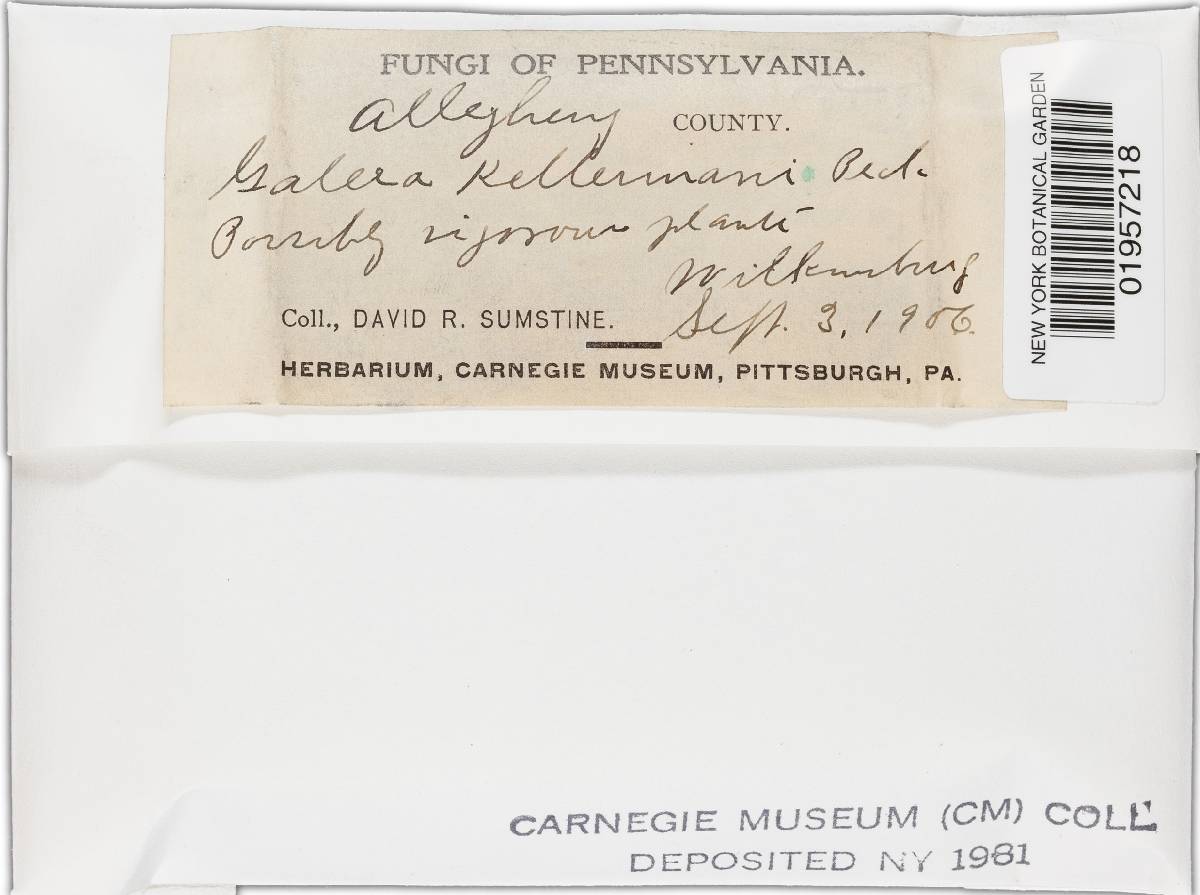 FUNGI OF PENNSYLVANIA.
Allegheny COUNTY.
Galera Kellermani Peck
Possibly vigorous plants
Wilkinsburg
Coll., DAVID R. SUMSTINE. Sept. 3, 1906.
HERBARIUM, CARNEGIE MUSEUM, PITTSBURGH, PA.
NEW YORK BOTANICAL GARDEN
01957218
CARNEGIE MUSEUM (CM) COLL
DEPOSITED NY 1981